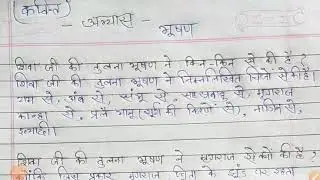 (कवित्त)
- अभ्यास -
भूषण
शिवा जी की तुलना भूषण ने किन-किन से की है ?
शिवा जी की तुलना भूषण ने निम्नलिखित चीजों से की है।
राम से, से, संभु से, सहस्रबाहु से, मृगराज
कान्हा से, प्रले भानु (सूर्य की किरणों से), वाडिम से,
इत्यादि।
शिवा जी की तुलना भूषण ने मृगराज से क्यों की है ?
क्योंकि जिस प्रकार मृगराज के झुंड पर